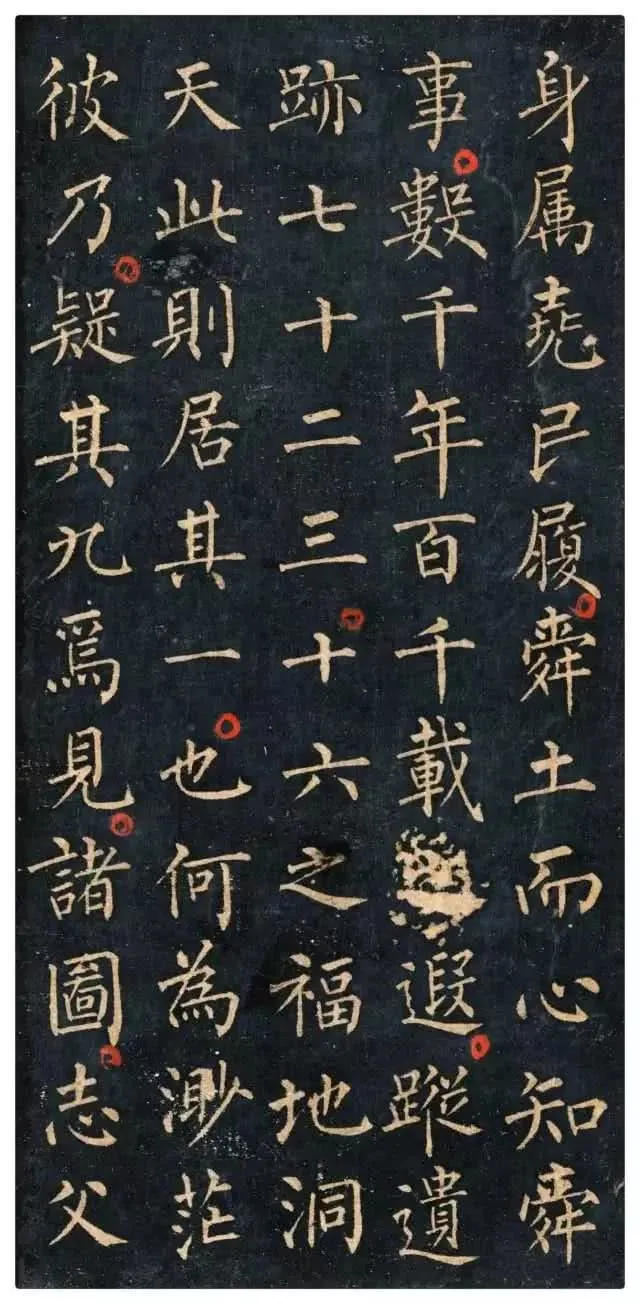 身属尭已履舜土而心知舜
事數千年百千載遐蹤遺
跡七十二三十六之福地洞
天此則居其一也何為渺茫
彼乃疑其九爲見諸圖志父